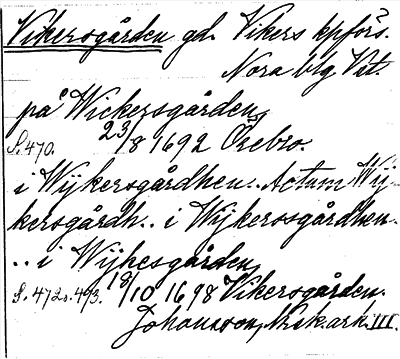 Vikersgården gd. Vikers kpförs.
Nora blg Vstl.
på Wickersgården
S. 470. 23/8 1692 Örebro.
i Wijkersgårdhen.. Actum Wij-
kersgårdh.. i Wijkerosgårdhen
.. i Wijhesgården
S. 472 o. 493. 18/10 1698 Vikersgården.
Johansson, Nsk. ark. III.